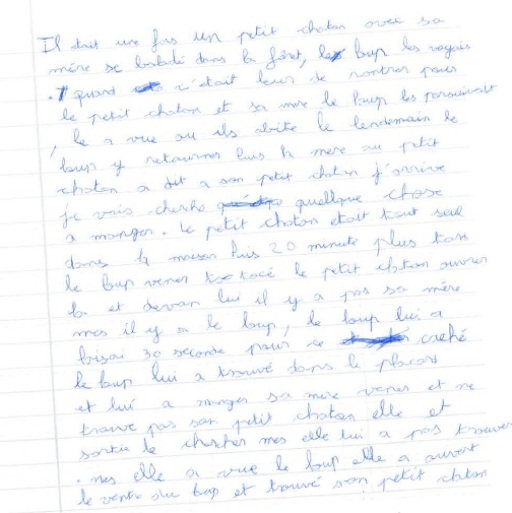 Il était une fois un petit chaton avec sa
mère se baladé dans la fôret, le loup les voyais
. quand c'était leur de rentrer pour
le petit chaton et sa mère le loup les poursuivait
, le a vue ou ils abite le lendemain le
loup y retourner puis la mère au petit
chaton a dit a son petit chaton j'arrive
je vais cherche quellque chose
a manger. le petit chaton etait tout seul
dans la maison puis 20 minute plus tars
le loup vener toc tocé le petit chaton ouvrer
la et devan lui il y a pas sa mère
mes il y a le loup, le loup lui a
laisai 30 seconde pour se caché
le loup lui a trouvé dans le placars
et lui a manger sa mère vener et ne
trouve pas son petit chaton elle et
sortie le chercher mes elle lui a pas trouver
. mes elle a vue le loup elle a ouvert
le ventre du loup et trouvé son petit chaton